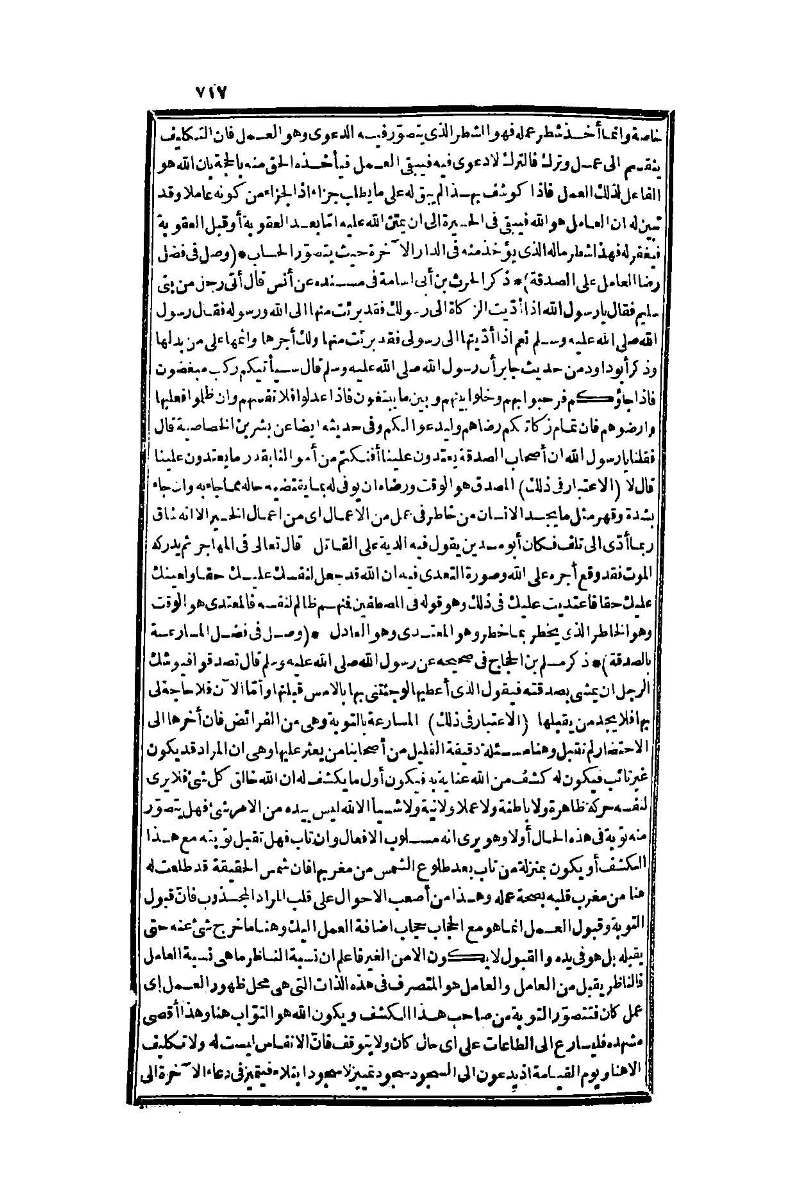 ٧١٧
خاصة وانما أخذ شطر عمله فهو الشطر الذى يتصوّر فيه الدعوى وهو العمل فان التكليف
ينقسم الى عمل وترك فالترك لا دعوى فيه فيبقى العمل فيأخذه الحق منه بالحجة بان الله هو
الفاعل لذلك العمل فاذا كوشف بهذا لم يبق له على ما يطلب جزاء اذ الجزاء من كونه عاملا وقد
تبين له ان العامل هو الله فيبقى فى الحيرة الى ان يمتنّ الله عليه امّا بعد العقوبة أو قبل العقوبة
فيغفر له فهذا شطر ماله الذى يؤخذ منه فى الدار الآخرة حيث يتصوّر الحساب * (وصل فى فضل
رضا العامل على الصدقة) * ذكر الحرث بن أبى اسامة فى مسنده عن أنس قال أتى رجل من بنى
سليم فقال يا رسول الله اذا أدّيت الزكاة الى رسولك فقد برئت منها الى الله ورسوله فقال رسول
الله صلى الله عليه وسلم نعم اذا أدّيتها الى رسولى فقد برئت منها ولك أجرها واثمها على من بدلها
وذكر أبو داود من حديث جابر أن رسول الله صلى الله عليه وسلم قال سيأتيكم ركب مبغضون
فاذا جاؤكم فرحبوا بهم وخلوا بينهم وبين ما يبتغون فاذا عدلوا فلانفسهم وان ظلوا فعليها
وارضوهم فان تمام زكاتكم رضاهم وليدعوا لكم وفى حديثه ايضا عن بشر بن الخصاصية قال
فقلنا يا رسول الله ان أصحاب الصدقة يعتدون علينا أفنكتم من أموالنا بقدر ما يعتدون علينا
قال لا (الاعتبار فى ذلك) المصدق هو الوقت ورضاه ان يوفى له بما يقتضيه حاله مما جاء به وان جاء
بشدة وقهر مثل ما يجد الانسان من خاطر فى عمل من الاعمال اى من اعمال الخير الا انه شاق
ربما أدّى الى تلف فكان أبو مدين يقول فيه الدية على القاتل قال تعالى فى المهاجر ثم يدركه
الموت فقد وقع أجره على الله وصورة التعدى فيه ان الله قد جعل لنفسك عليك حقا ولعينك
عليك حقا فاعتديت عليك فى ذلك وهو قوله فى المصطفين فمنهم ظالم لنفسه فالمعتدى هو الوقت
وهو الخاطر الذى يخطر بما خطر وهو المعتدى وهو العادل * (وصل فى فضل المسارعة
بالصدقة) * ذكر مسلم بن الحجاج فى صحيحه عن رسول الله صلى الله عليه وسلم قال تصدقوا فيوشك
الرجل ان يمشى بصدقته فيقول الذى أعطيها لو جئتنى بها بالامس قبلتها وأمّا الآن فلا حاجة لى
بها فلا يجد من يقبلها (الاعتبار فى ذلك) المسارعة بالتوبة وهى من الفرائض فان أخرها الى
الاحتضار لم تقبل وهنا مسئلة دقيقة القليل من أصحابنا من يعثر عليها وهى ان المراد قد يكون
غير تائب فيكون له كشف من الله عناية به فيكون أول ما يكشف له ان الله خالق كل شئ فلا يرى
لنفسه حركة ظاهرة ولا باطنة ولا عملا ولا نية ولا شيأ الا لله ليس بيده من الامر شئ فهل يتصوّر
منه توبة فى هذه الحال أولا وهو يرى انه مسلوب الافعال وان تاب فهل تقبل توبته مع هذا
الكشف أو يكون بمنزلة من تاب بعد طلوع الشمس من مغربها فان شمس الحقيقة قد طلعت له
هنا من مغرب قلبه بصحة عمله وهذا من أصعب الاحوال على قلب المراد المجذوب فانّ قبول
التوبة وقبول العمل انما هو مع الحجاب حجاب اضافة العمل اليك وهنا ما خرج شئ عنه حتى
يقبله بل هو فى يده والقبول لا يكون الا من الغير فاعلم ان نسبة الناظر ما هى نسبة العامل
فالناظر يقبل من العامل والعامل هو المتصرف فى هذه الذات التى هى محل ظهور العمل اى
عمل كان فتتصوّر التوبة من صاحب هذا الكشف ويكون الله هو التوّاب هنا وهذا أقصى
مشهده فليسارع الى الطاعات على اى حال كان ولا يتوقف فانّ الانفاس ليست له ولا تكليف
الا هنا ويوم القيامة اذ يدعون الى السجود سجود تمييز لا سجود ابتلاء فيتميز فى دعاء الآخرة الى